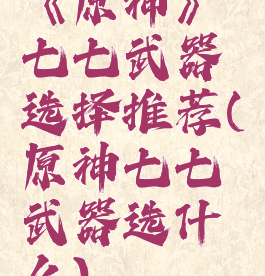 《原神》
七七武器
选择推荐(
原神七七
武器选什
么)